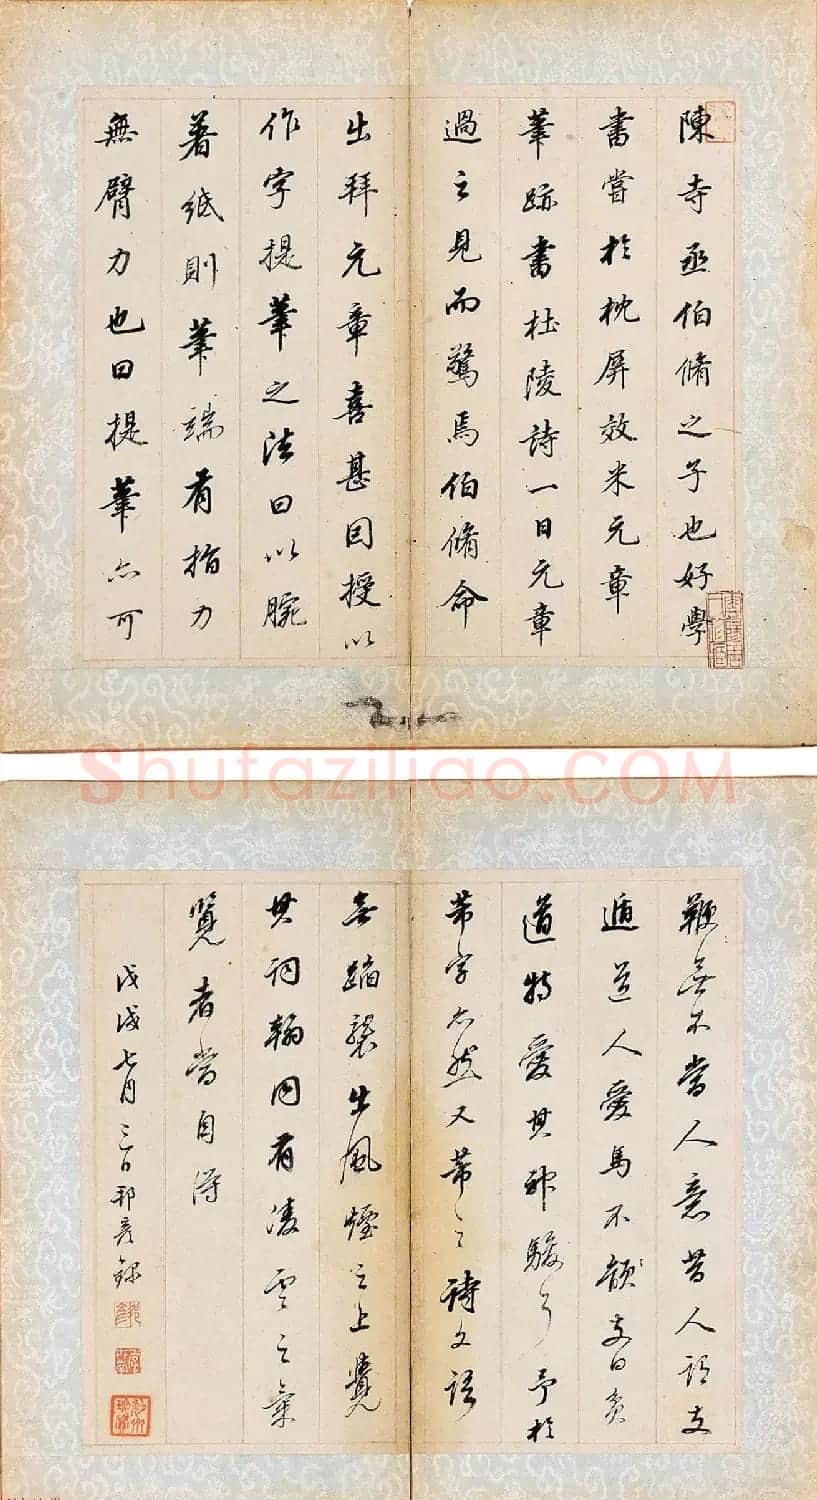 陳寺丞伯脩之子也好學
書嘗於枕屏效米元章
筆跡書杜陵詩一日元章
過之見而驚焉伯脩命
出拜元章喜甚因授以
作字提筆之法曰以腕
著紙則筆端有指力
無臂力也曰提筆亦可
Shufaziliao.COM
鞭無不當人意昔人謂支
遁道人愛馬不韻支曰貧
道特愛其神駿耳予於
芾字亦然又芾之詩文語
無蹈襲出風煙之上覺
其詞翰同有凌雲之氣
覽者當自得
戊戌七月三日邦彥錄